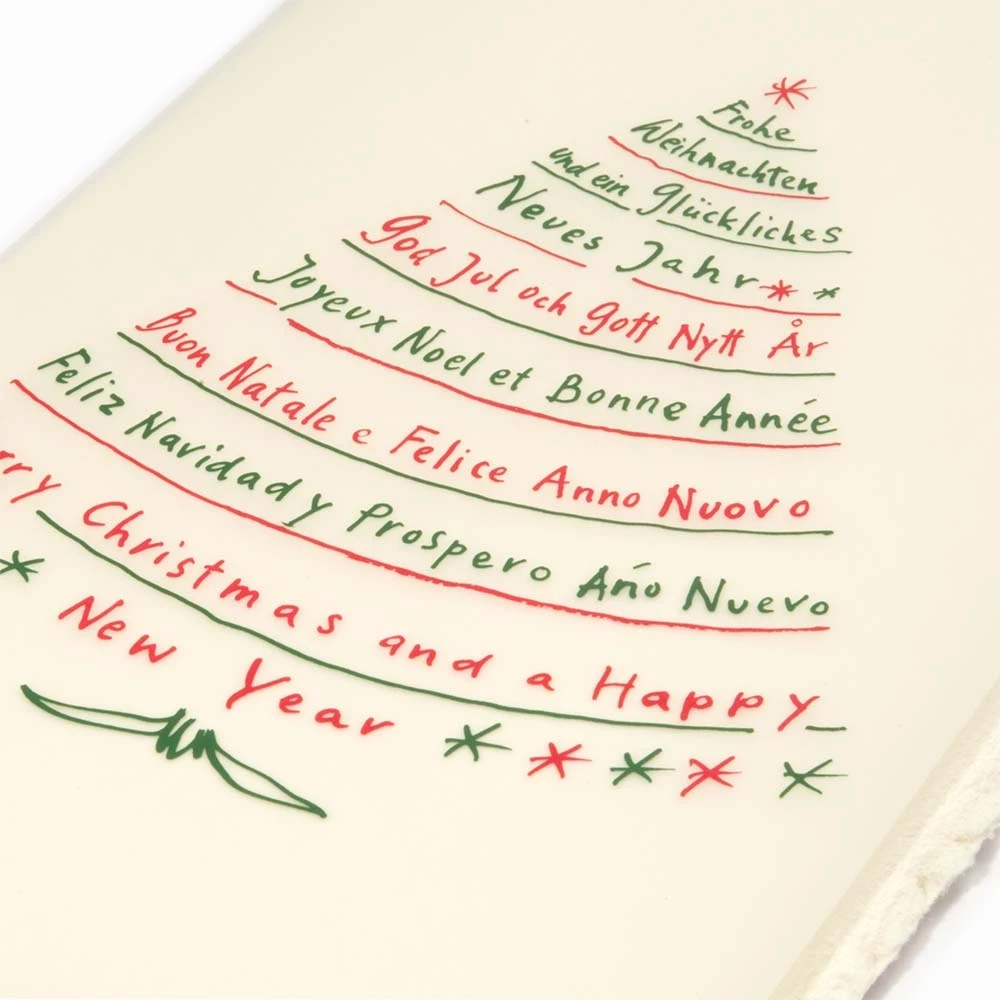 Frohe
Weihnachten
und ein glückliches
Neves Jahr
God Jul och Gott Nytt År
Joyeux Noel et Bonne Année
Buon Natale e Felice Anno Nuovo
Feliz Navidad y Prospero Año Nuevo
rry Christmas and a Happy
New Year